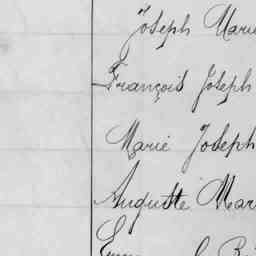 Joseph Marie
François Joseph
Marie Joseph
Auguste Mar